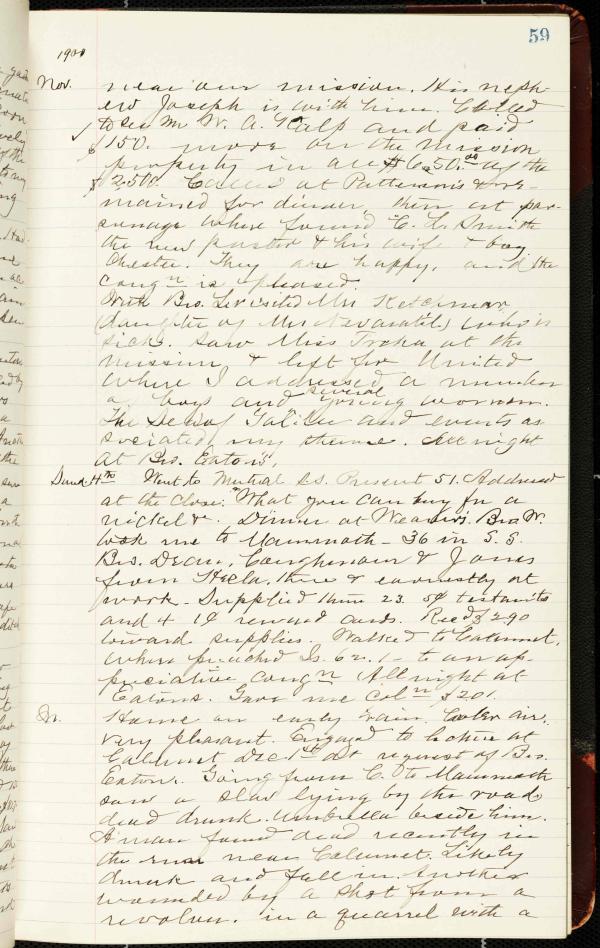 59
1900
Nov. near our mission. His neph-
ew Joseph is with him. Called
to see Mr W. A. Kalp and paid
$150. more on the mission
property in all $650.00 of the
$2,500. Called at Patterson's & re-
mained for dinner, then at par-
sonage where found C. L. Smith
the new pastor & his wife & boy
Chester. They are happy, and the
congn is pleased.
With Bro. L. visited Mrs Ketchmar
(daughter of Mrs Navaratil) who is
sick. Saw Miss Troha at the
mission, & left for United
where I addressed a number
of boys and several young women.
The Sea of Galilee and events as
sociated, my theme. All night
at Bro. Eaton's.
Sund. 4th Went to Mutual S.S. Present 51. Addressed
at the close: "What you can buy for a
nickel &. Dinner at Weaver's. Bro W.
took me to Mammoth - 36 in S. S.
Bro. Dean, Coughenour & Jones
from Hecla, there & earnestly at
work. Supplied them 23 5¢ testaments
and 4 1¢ reward cards. Recd $2.90
toward supplies. Walked to Calumet,
where preached Is. 62.1- to an ap-
preciative congn. All night at
Eatons. Gave me coln $2.01.
Home on early train. Cooler air,
very pleasant. Engaged to be here at
Calumet Dec 1st at request of Bro.
Eaton. Going from C. to Mammoth
saw a slav lying by the road
dead drunk. Umbrella beside him.
A man found dead recently in
the run near Calumet. Likely
drunk and fell in. Another
wounded by a shot from a
revolver. in a quarrel with a